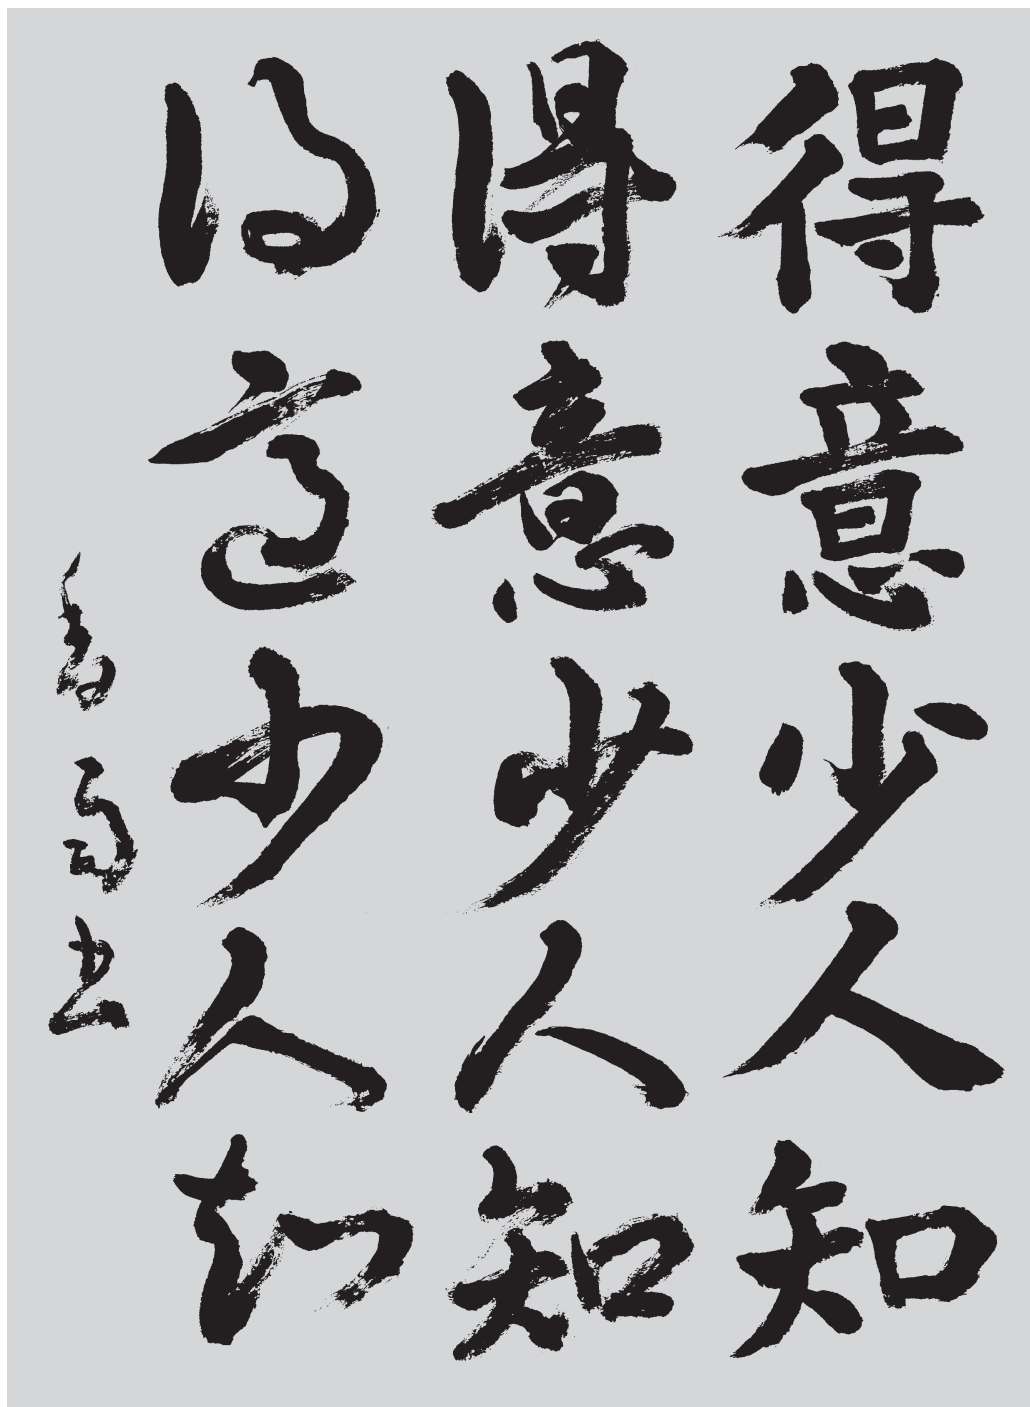 得意少人知
得意少人知
得意少人知
書